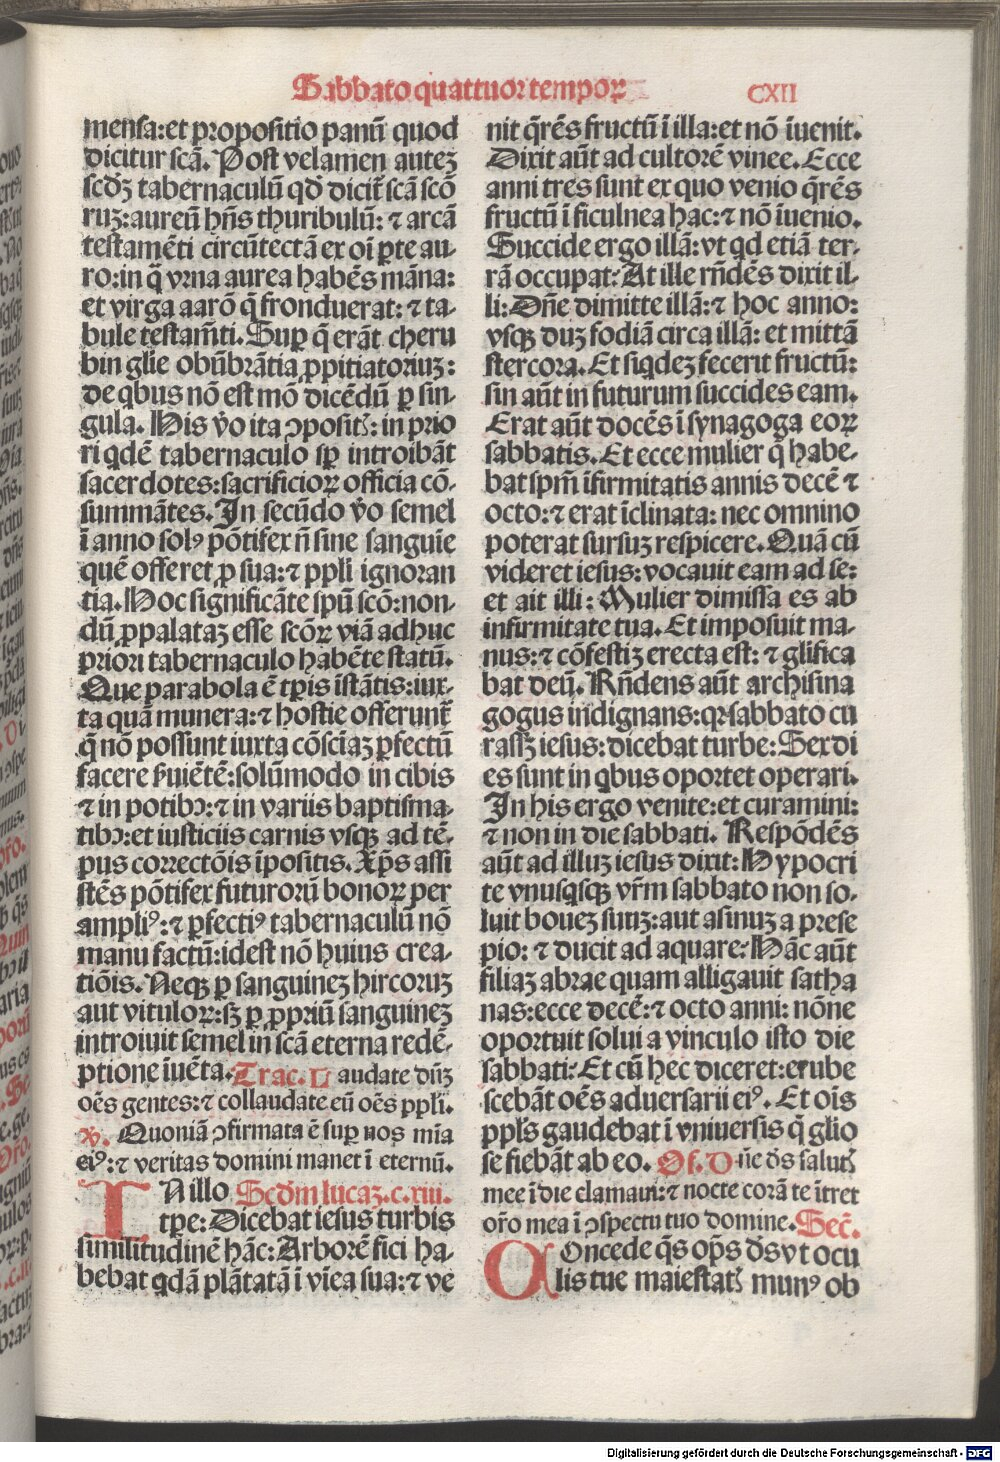 Sabbato quattuor tempoꝝ CXII
mensa:et propositio panū quod
dicitur scā. Post velamen autez
scdʒ tabernaculū qd̄ dicit᷑ scā scō
ruz:aureū hn̄s thuribulū: ⁊ arcā
testamēti circūtectā ex oī ꝑte au-
ro:in q̄ vrna aurea habēs māna:
et virga aarō q̄ fronduerat: ⁊ ta-
bule testam̄ti. Suꝑ q̄ erāt cheru
bin glīe obūbrātia ꝓpitiatoriuz:
de qbus nō est mō dicēdū ꝑ sin-
gula. His v̄o ita ꝯpositꝭ: in prio
ri qdē tabernaculo sꝑ introibāt
sacerdotes:sacrificioꝝ officia cō-
summātes. In secūdo v̄o semel
ī anno solꝰ pōtifex n̄ sine sanguīe
quē offeret ꝓ sua: ⁊ ppl̄i ignoran
tia. Hoc significāte spū scō:non-
dū ꝓpalataz esse scōꝝ viā adhuc
priori tabernaculo habēte statū.
Que parabola ē tꝑis īstātis:iux-
ta quā munera: ⁊ hostie offerunt᷑
q̄ nō possunt iuxta cōsciāz ꝑfectū
facere ẜuiētē:solūmodo in cibis
⁊ in potibꝰ: ⁊ in variis baptisma-
tibꝰ:et iusticiis carnis vsqꝫ ad tē-
pus correctōis īpositis. Xp̄s assi
stēs pōtifex futurorū bonoꝝ per
ampliꝰ: ⁊ ꝑfectiꝰ tabernaculū nō
manu factū:idest nō huius crea-
tiōis. Neqꝫ ꝑ sanguinez hircoruz
aut vituloꝝ:sꝫ ꝑ ꝓpriū sanguinez
introiuit semel in scā eterna redē-
ptione iuēta. Trac. Laudate dn̄z
oēs gentes: ⁊ collaudate eū oēs ppl̄i.
℣. Quoniā ꝯfirmata ē suꝑ nos mīa
eiꝰ: ⁊ veritas domini manet ī eternū.
IN illo Scd̄m lucaz.c.xiii.
tꝑe: Dicebat iesus turbis
similitudinē hāc: Arborē fici ha-
bebat qdā plātatā ī vīea sua: ⁊ ve
nit q̄rēs fructū ī illa:et nō īuenit.
Dixit aūt ad cultorē vinee. Ecce
anni tres sunt ex quo venio q̄rēs
fructū ī ficulnea hac: ⁊ nō īuenio.
Succide ergo illā: vt qd etiā ter-
rā occupat: At ille rn̄dēs dixit il-
li: Dn̄e dimitte illā: ⁊ hoc anno:
vsqꝫ duz fodiā circa illā: et mittā
stercora. Et siqdez fecerit fructū:
sin aūt in futurum succides eam.
Erat aūt docēs ī synagoga eoꝝ
sabbatis. Et ecce mulier q̄ habe-
bat spm̄ īfirmitatis annis decē ⁊
octo: ⁊ erat īclinata: nec omnino
poterat sursuz respicere. Quā cū
videret iesus: vocauit eam ad se:
et ait illi: Mulier dimissa es ab
infirmitate tua. Et imposuit ma-
nus: ⁊ cōfestiz erecta est: ⁊ glifica
bat deū. Rn̄dens aūt archisina
gogus indignans:qꝛ sabbato cu
rassz iesus: dicebat turbe: Sex di
es sunt in qbus oportet operari.
In his ergo venite:et curamini:
⁊ non in die sabbati. Respōdēs
aūt ad illuz iesus dixit: Hypocri
te vnusqsqꝫ vr̄m sabbato non so-
luit bouez suuz: aut asinuz a prese
pio: ⁊ ducit ad aquare: Hāc aūt
filiaz abrae quam alligauit satha
nas:ecce decē: ⁊ octo anni: nōne
oportuit solui a vinculo isto die
sabbati: Et cū hec diceret:erube
scebāt oēs aduersarii eiꝰ. Et oīs
ppl̄s gaudebat ī vniuersis q̄ glio
se fiebāt ab eo. Of. Dn̄e ds̄ salutꝭ
mee ī die clamaui: ⁊ nocte corā te ītret
or̄o mea ī ꝯspectu tuo domine. Sec̄.
COncede qs̄ op̄s ds̄ vt ocu
lis tue maiestatꝭ munꝰ ob
Digitalisierung gefördert durch die Deutsche Forschungsgemeinschaft - DFG